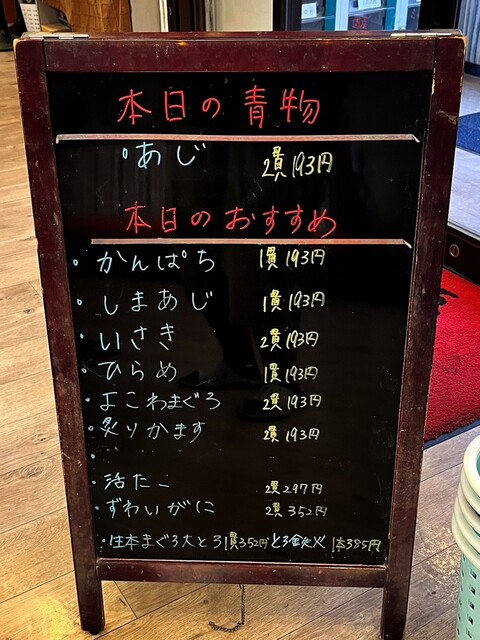 本日の青物
あじ 2貫193円
本日のおすすめ
かんぱち 1貫193円
しまあじ 1貫193円
いさき 2貫193円
ひらめ 1貫193円
よこわまぐろ 2貫193円
炙りかます 2貫193円
活たこ 2貫297円
ずわいがに 2貫352円
生本まぐろ大とろ1貫352円 とろ鉄火 1本385円